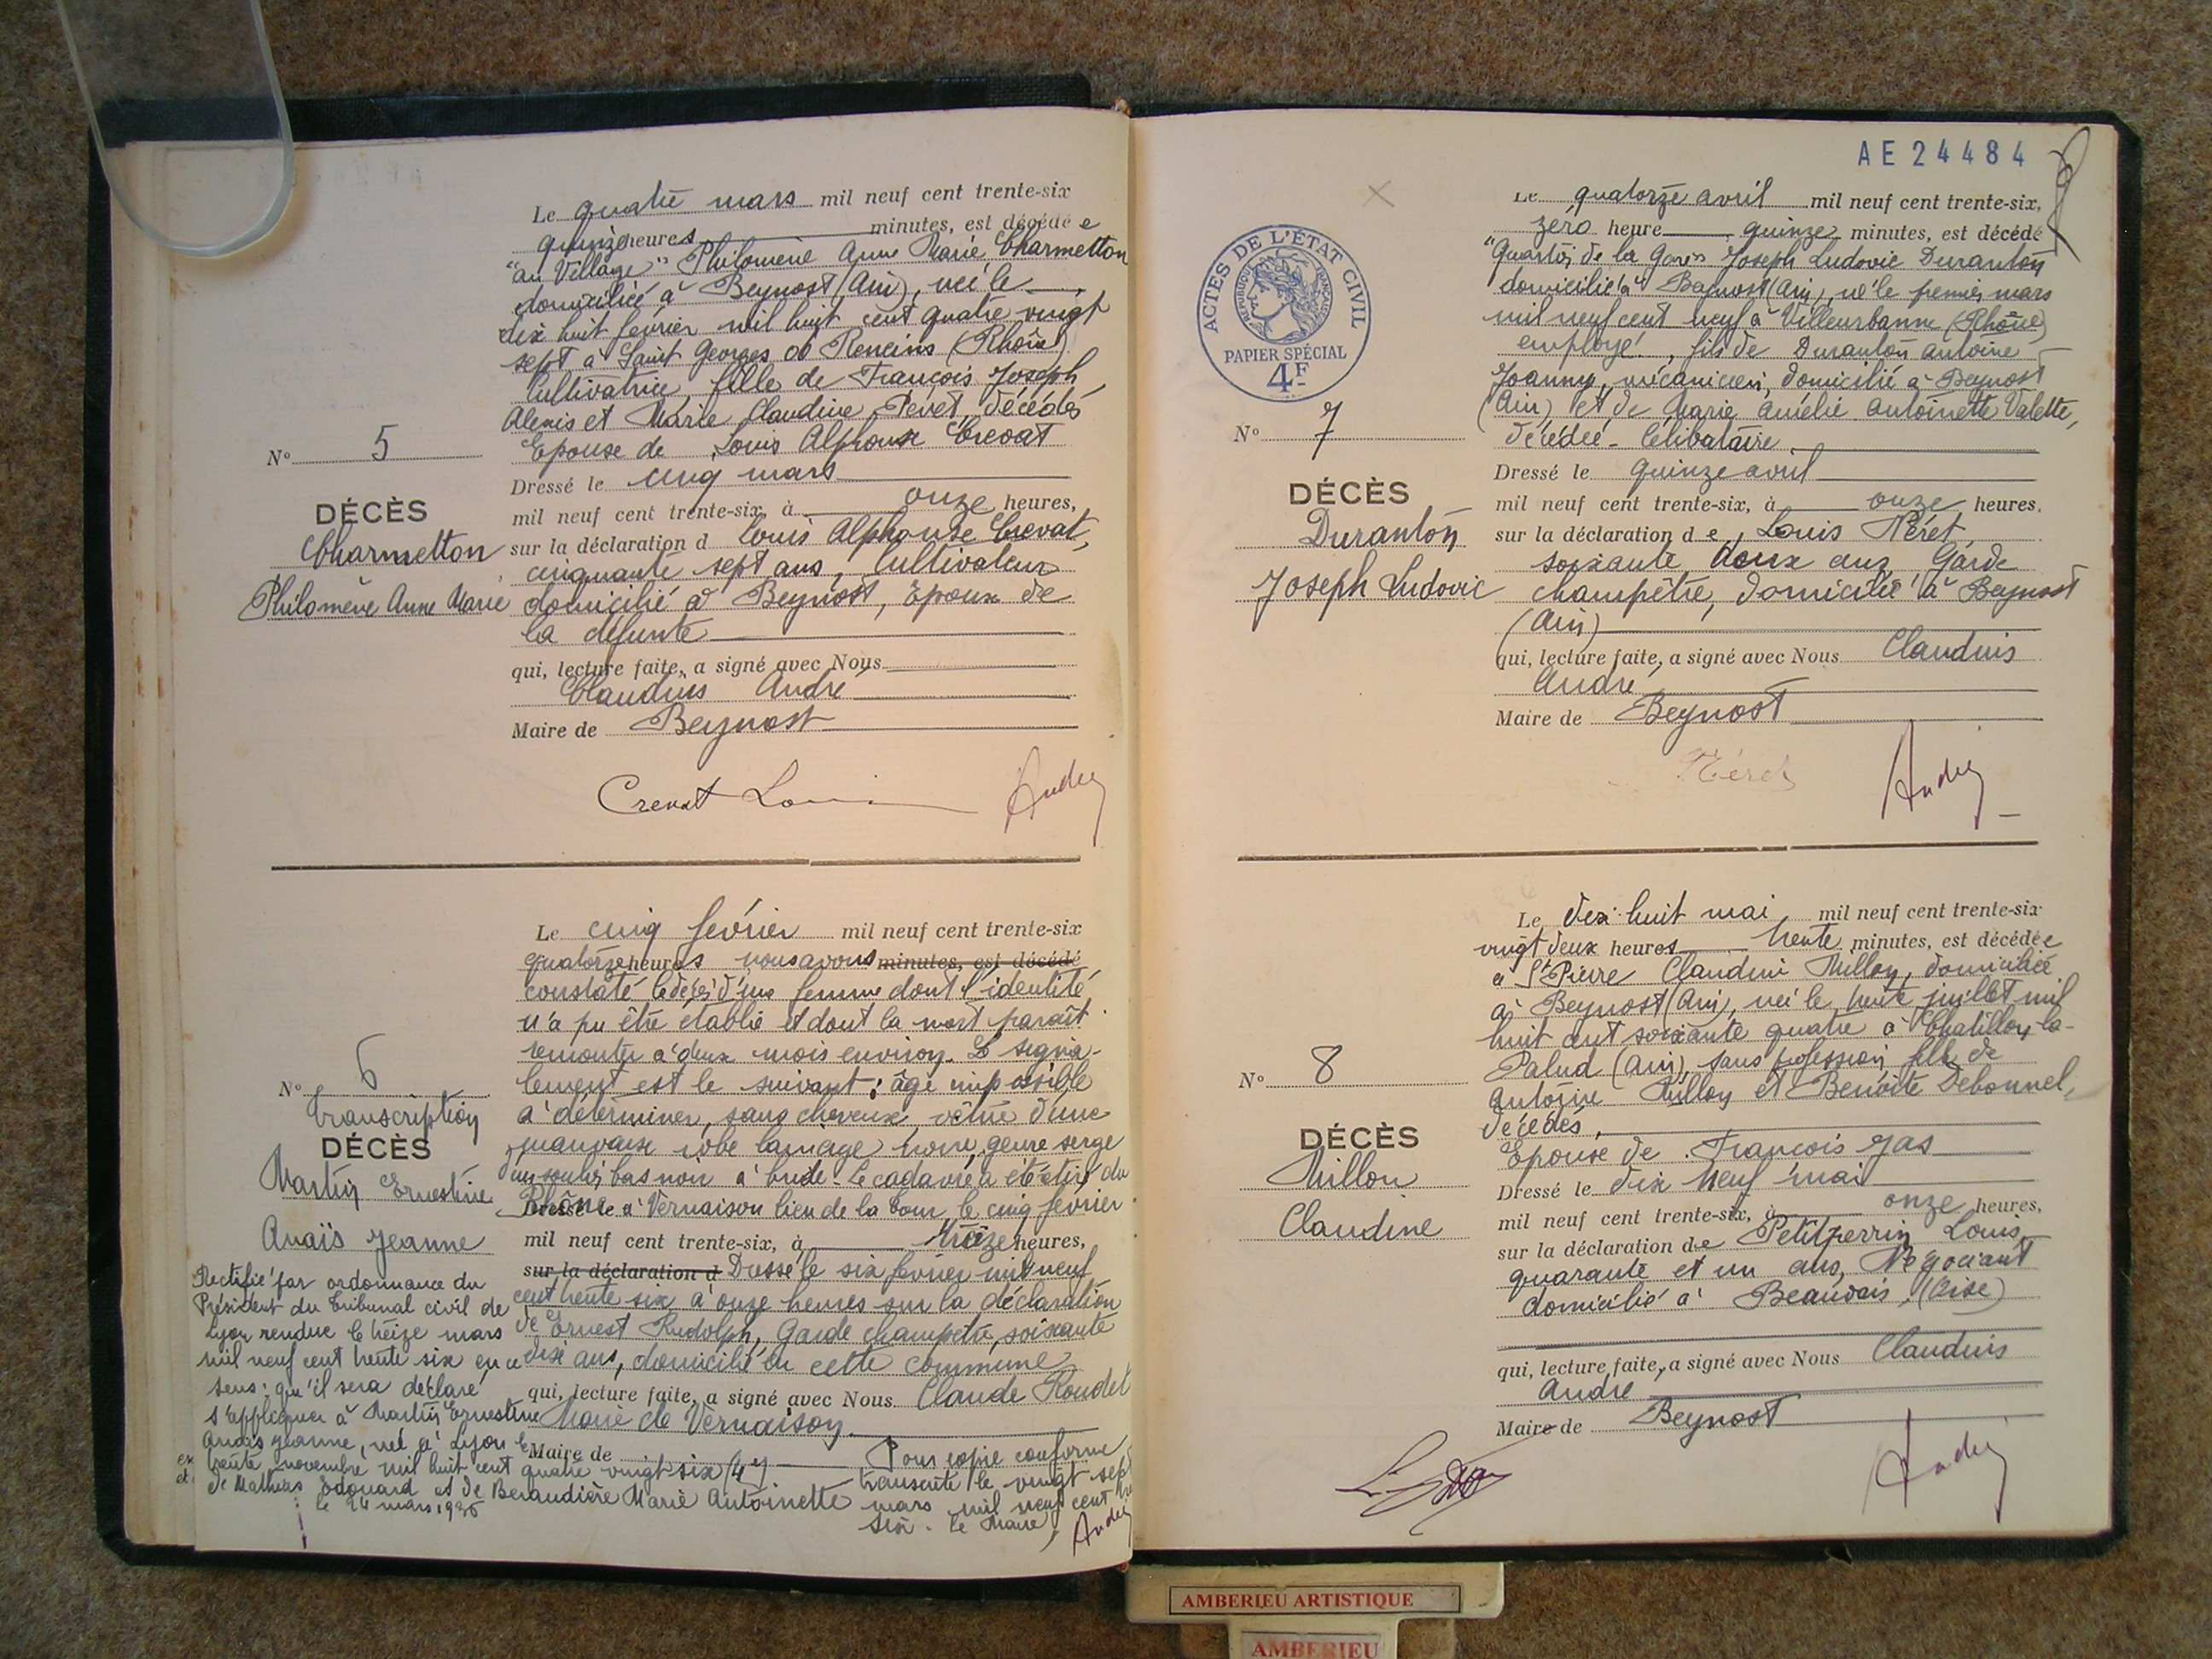 Le quatre mars mil neuf cent trente-six
quinze heures minutes, est décédé e
"au Village" Philomène Anne Marie Charmetton
domiciliée à Beynost (Ain), née le
dix huit février mil huit cent quatre vingt
sept à Saint Georges de Reneins (Rhône)
Cultivatrice, fille de François Joseph
Alexis et Marie Claudine Péret, décédés
Epouse de Louis Alphonse Crevat
N° 5
Dressé le cinq mars
DÉCÈS
Charmetton
Philomène Anne Marie
mil neuf cent trente-six, à onze heures,
sur la déclaration d Louis Alphonse Crevat,
cinquante sept ans, Cultivateur
domicilié à Beynost, Epoux de
la défunte
qui, lecture faite, a signé avec Nous
Claudius André
Maire de Beynost
Crevat Louis André
Le cinq février mil neuf cent trente-six
quatorze heures nous avons minutes, est décédé
constaté le décès d'une femme dont l'identité
n'a pu être établie et dont la mort parait
remonter à deux mois environ. Le signa-
lement est le suivant : âge impossible
à déterminer, sans cheveux, vêtue d'une
mauvaise robe lainage noire, genre serge
un soulier bas noir à bride. Le cadavre a été retiré du
Rhône à Vernaison lieu de la Tour, le cinq février
N° 6
transcription
DÉCÈS
Martin Ernestine
Anaïs Jeanne
mil neuf cent trente-six, à treize heures,
sur la déclaration d Dressé le six février mil neuf
cent trente six à onze heures sur la déclaration
de Ernest Rudolph, Garde champêtre, soixante
dix ans, domicilié en cette commune
qui, lecture faite, a signé avec Nous Claude Roudet
Maire de Vernaison
Maire de Pour copie conforme
transcrite le vingt sept
mars mil neuf cent
six. Le Maire,
André
Rectifié par ordonnance du
Président du Tribunal civil de
Lyon rendue le treize mars
mil neuf cent trente six en ce
sens : qu'il sera déclaré
s'appliquer à Martin Ernestine
Anaïs Jeanne, née à Lyon le
trente novembre mil huit cent quatre vingt six
de Mathieu Edouard et de Beraudière Marie Antoinette
le 24 mars 1936
AE 24484
ACTES DE L'ÉTAT CIVIL
RÉPUBLIQUE FRANÇAISE
PAPIER SPÉCIAL
4F
Le quatorze avril mil neuf cent trente-six,
zéro heure quinze minutes, est décédé
"Quartier de la Gare" Joseph Ludovic Duranton
domicilié à Beynost (Ain), né le premier mars
mil neuf cent neuf à Villeurbanne (Rhône)
employé, fils de Duranton Antoine
Joanny, mécanicien, domicilié à Beynost
(Ain) et de Marie Amélie Antoinette Valette,
décédée - Célibataire
N° 7
DÉCÈS
Duranton
Joseph Ludovic
Dressé le quinze avril
mil neuf cent trente-six, à onze heures,
sur la déclaration d e Louis Néret,
soixante deux ans, Garde
champêtre, domicilié à Beynost
(Ain)
qui, lecture faite, a signé avec Nous Claudius
André
Maire de Beynost
Néret André
Le dix huit mai mil neuf cent trente-six
vingt deux heures trente minutes, est décédée
à St Pierre Claudine Millon, domiciliée
à Beynost (Ain), née le trente juillet mil
huit cent soixante quatre à Chatillon-la-
Palud (Ain), sans profession, fille de
Antoine Millon et Benoite Debonnel,
décédés,
Epouse de François Jas
N° 8
DÉCÈS
Millon
Claudine
Dressé le dix neuf mai
mil neuf cent trente-six, à onze heures,
sur la déclaration de Petitperrin Louis,
quarante et un ans, Négociant
domicilié à Beauvais, (Oise)
qui, lecture faite, a signé avec Nous Claudius
André
Maire de Beynost
André
AMBERIEU ARTISTIQUE
AMBERIEU